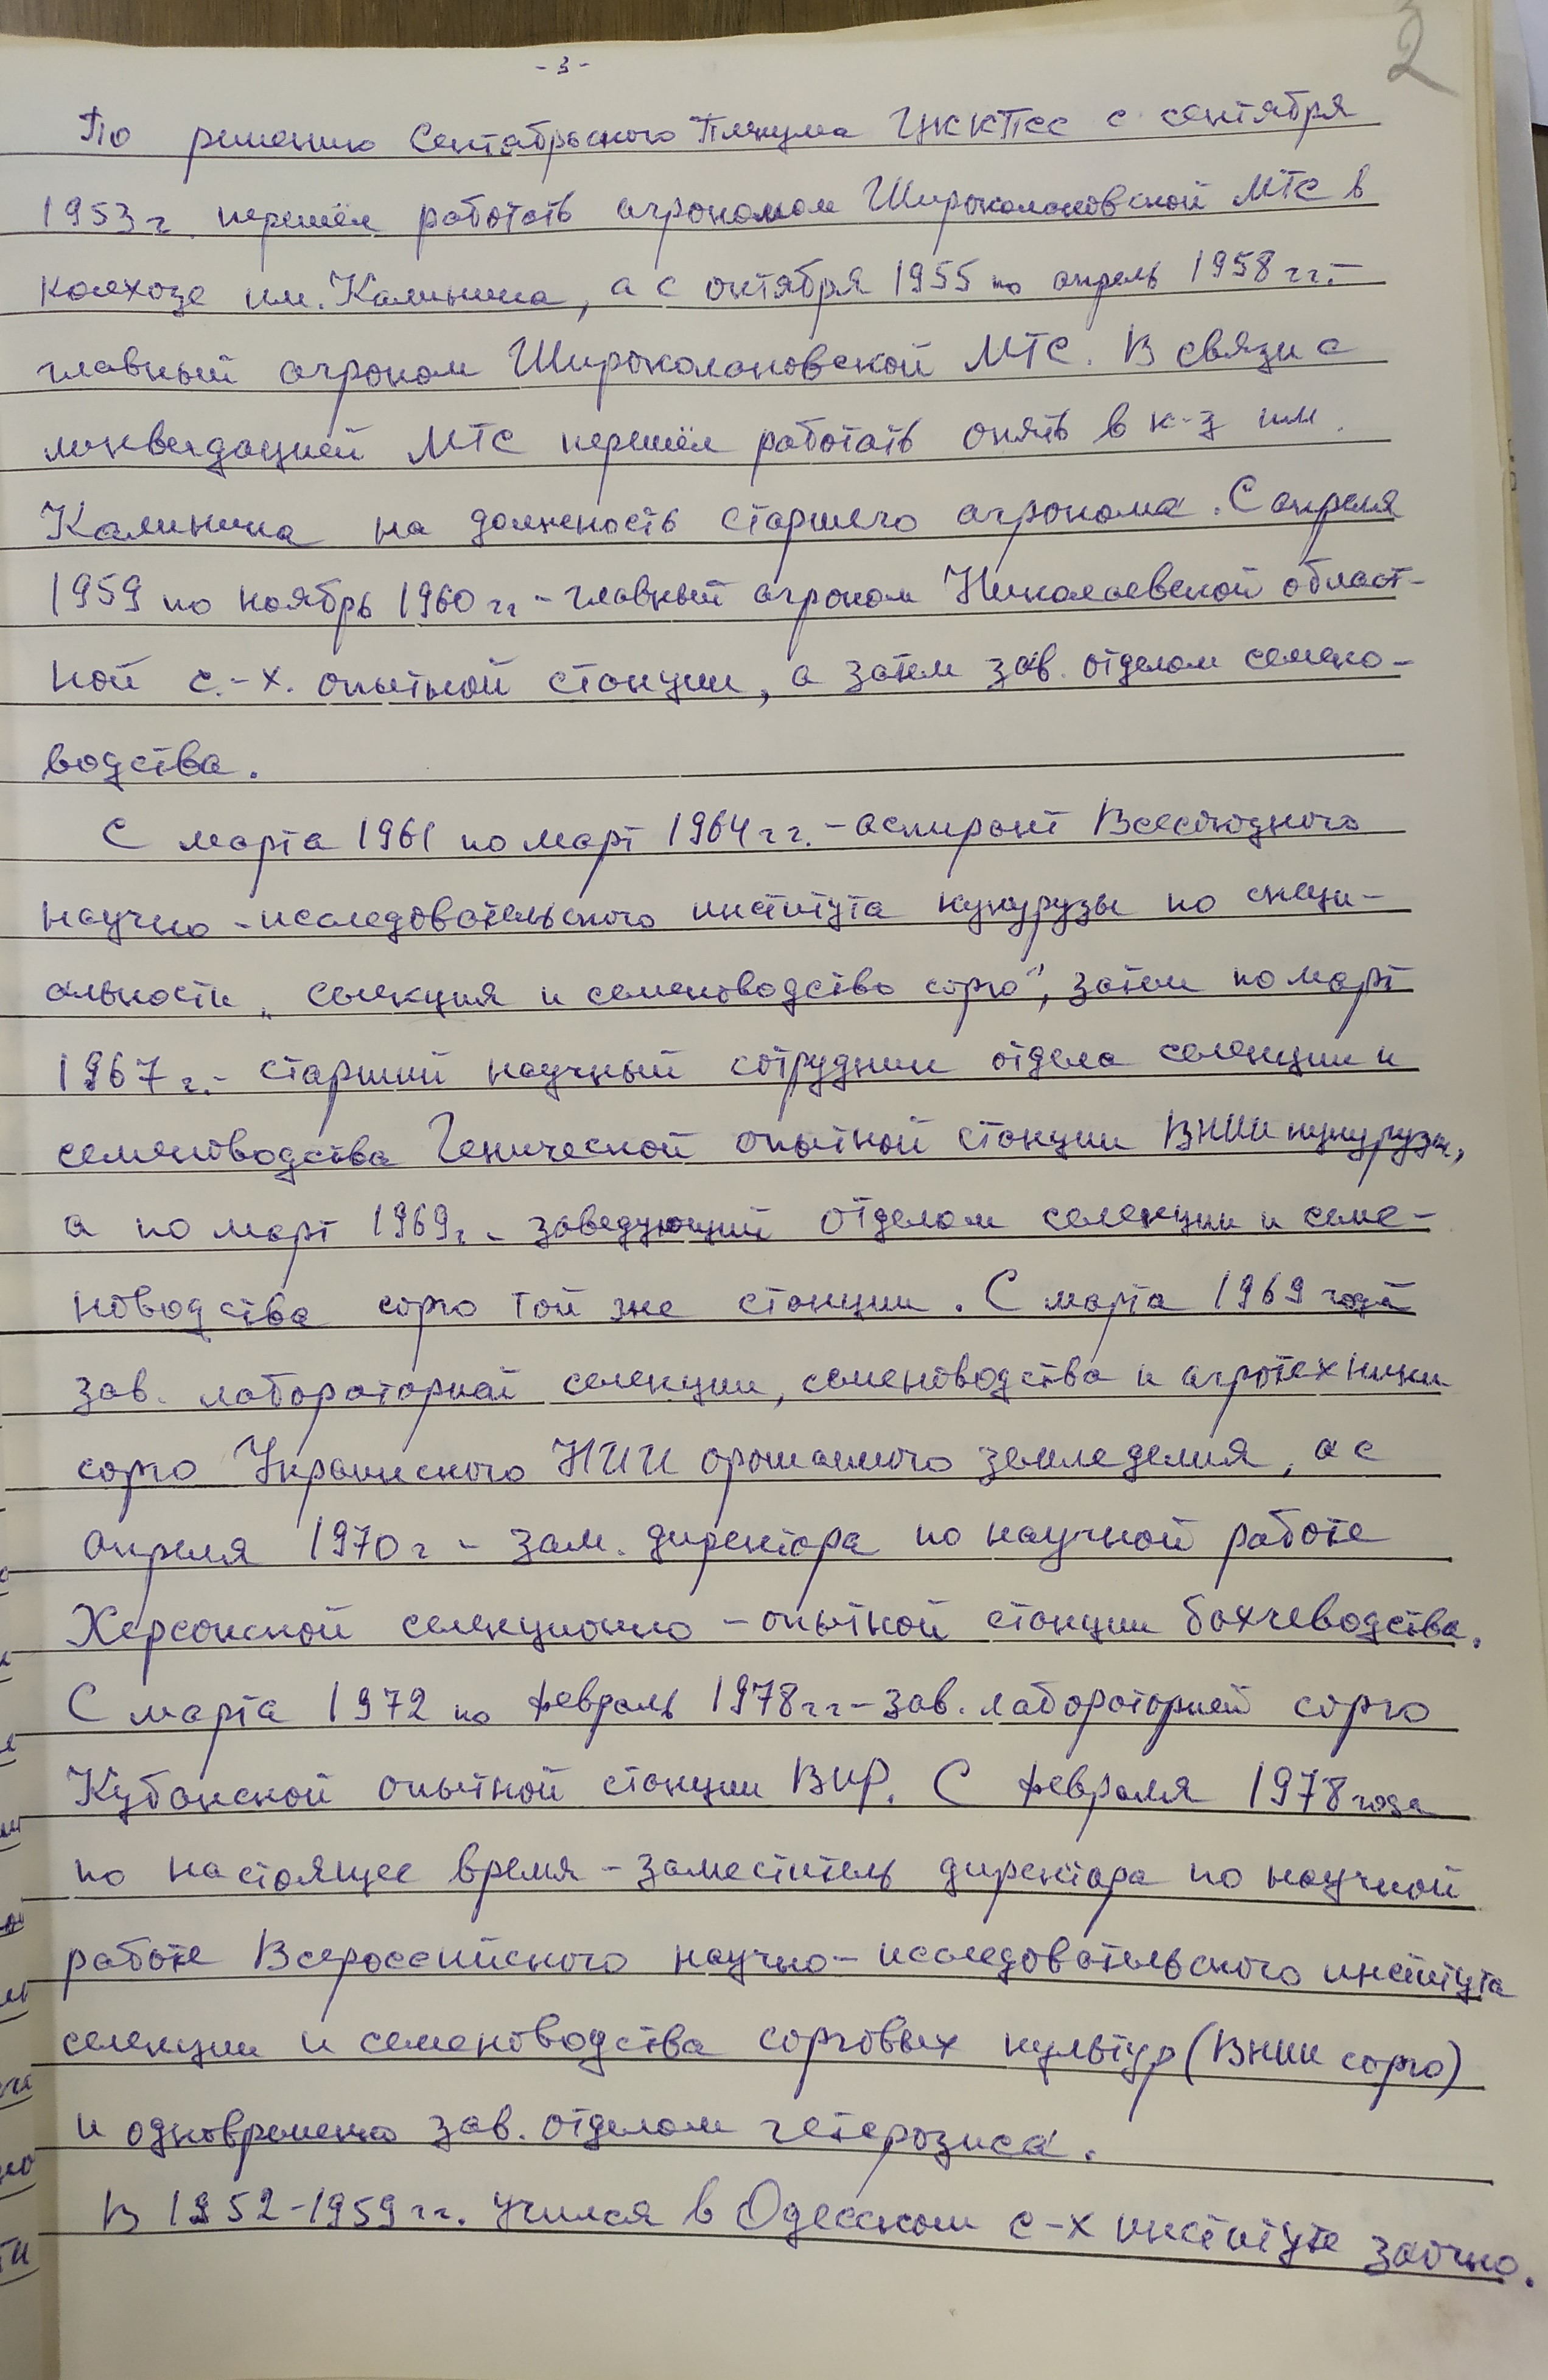 2
- 3 -
По решению Сентябрьского Пленума ЦК КПСС с сентября
1953 г. перешёл работать агрономом Широколановской МТС в
колхозе им. Калинина, а с октября 1955 по апрель 1958 гг. –
главный агроном Широколановской МТС. В связи с
ликвидацией МТС перешёл работать опять в к-з им.
Калинина на должность старшего агронома. С апреля
1959 по ноябрь 1960 гг – главный агроном Николаевской област-
ной с.-х. опытной станции, а затем зав. отделом семено-
водства.
С марта 1961 по март 1964 гг. – аспирант Всесоюзного
научно-исследовательского института кукурузы по специ-
альности „селекция и семеноводство сорго", затем по март
1967 г. – старший научный сотрудник отдела селекции и
семеноводства Генической опытной станции ВНИИ кукурузы,
а по март 1969 г. – заведующий отделом селекции и семе-
новодства сорго той же станции. С марта 1969 года
зав. лабораторией селекции, семеноводства и агротехники
сорго Украинского НИИ орошаемого земледелия, а с
апреля 1970 г – зам. директора по научной работе
Херсонской селекционно-опытной станции бахчеводства.
С марта 1972 по февраль 1978 гг – зав. лабораторией сорго
Кубанской опытной станции ВИР. С февраля 1978 года
по настоящее время – заместитель директора по научной
работе Всероссийского научно-исследовательского института
селекции и семеноводства сорговых культур (ВНИИ сорго)
и одновременно зав. отделом гетерозиса.
В 1952-1959 гг. учился в Одесском с-х институте заочно.